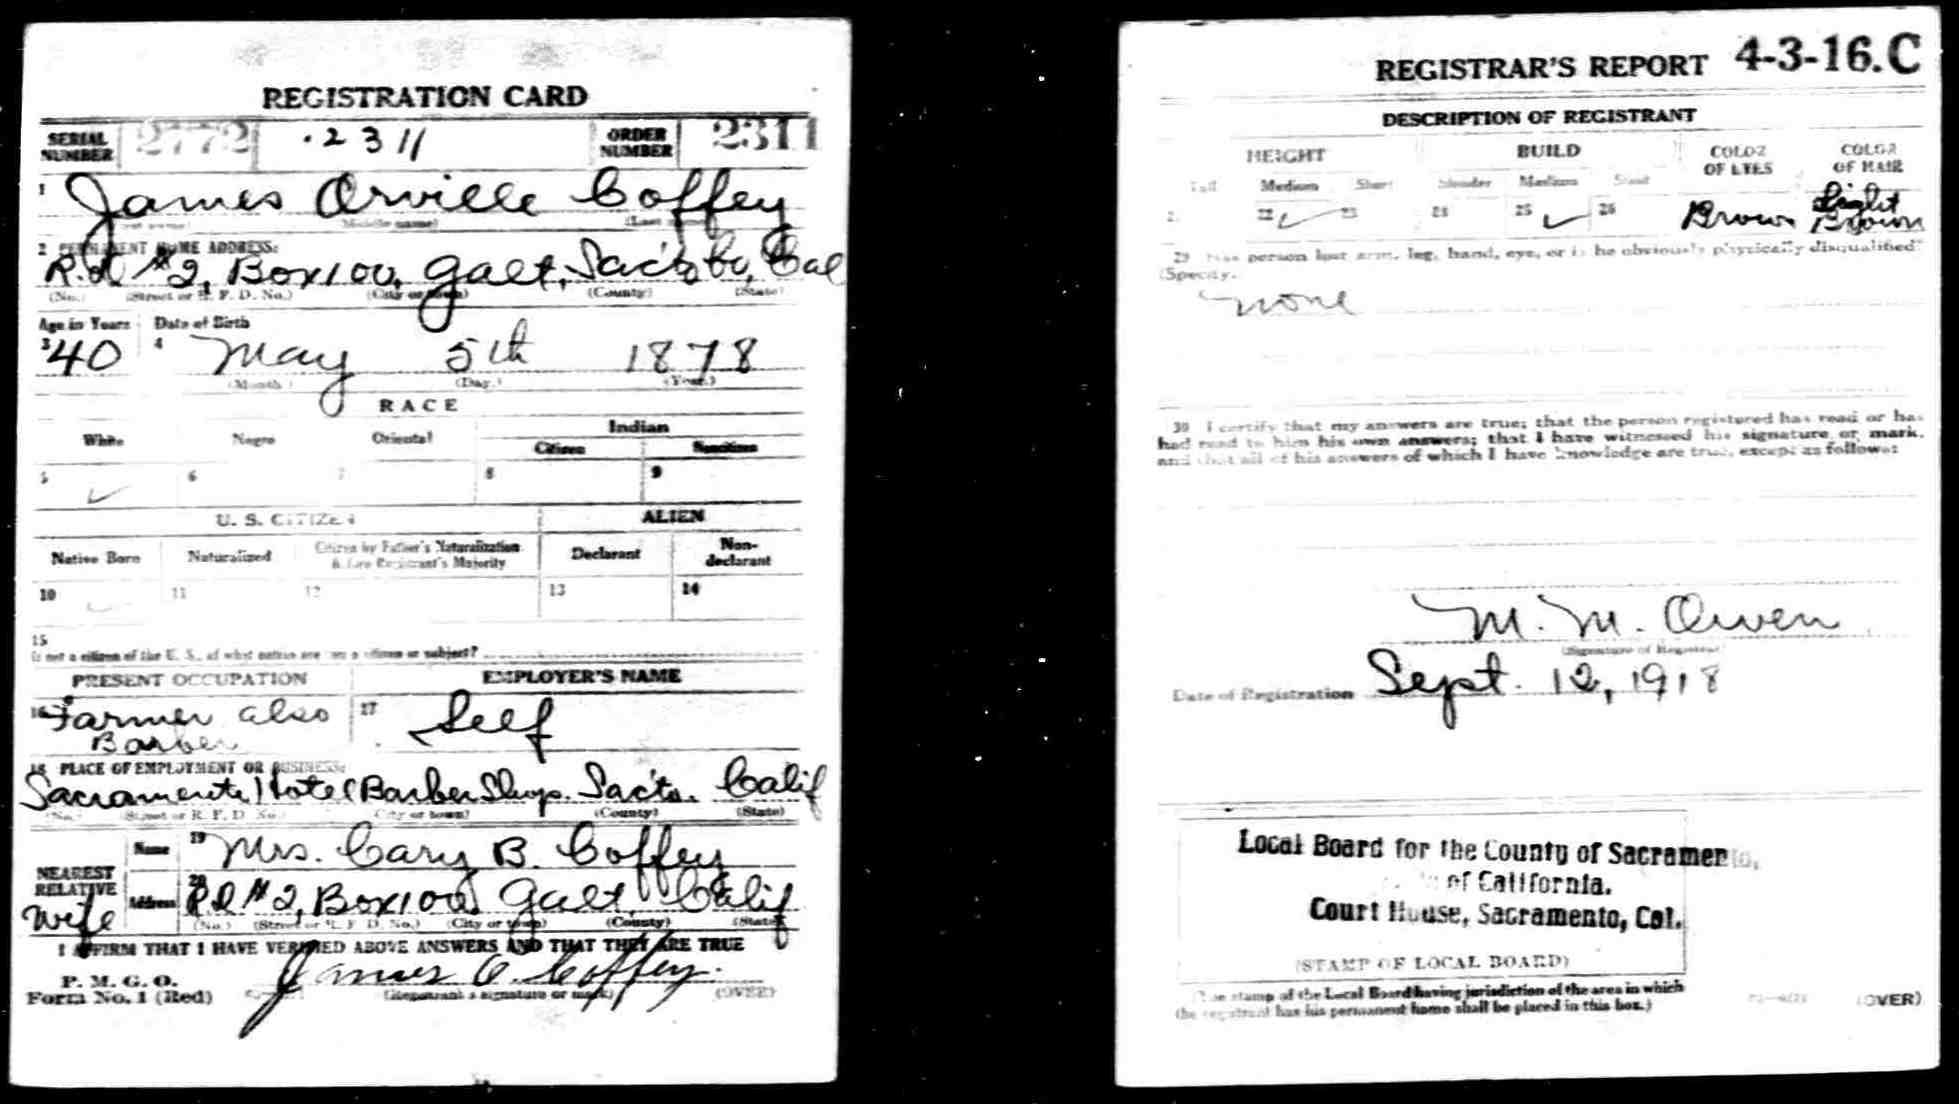 REGISTRATION CARD
SERIAL NUMBER 2772 .2311 ORDER NUMBER 2311
1 James Orville Coffey
(Middle name) (Last name)
2 PERMANENT HOME ADDRESS:
R.d #2, Box 100, Galt, Sac'to Co, Cal
(No.) (Street or R. F. D. No.) (City or town) (County) (State)
Age in Years Date of Birth
3 40 4 May 5th 1878
(Month.) (Day.) (Year.)
RACE
White Negro Oriental Indian
Citizen
5 6 7 8 9
U. S. CITIZEN ALIEN
Native Born Naturalized Citizen by Father's Naturalization Before Registrant's Majority Declarant Non-declarant
10 11 12 13 14
15
If not a citizen of the U. S., of what nation are you a citizen or subject?
PRESENT OCCUPATION EMPLOYER'S NAME
16 Farmer also 17 Self
Barber
18 PLACE OF EMPLOYMENT OR BUSINESS:
Sacramento Hotel Barber Shop. Sac'to. Calif
(No.) (Street or R. F. D. No.) (City or town) (County) (State)
NEAREST RELATIVE Name 19 Mrs. Cary B. Coffey
wife Address 20 Rd #2, Box 100 Galt, Calif
(No.) (Street or R. F. D. No.) (City or town) (County) (State)
I AFFIRM THAT I HAVE VERIFIED ABOVE ANSWERS AND THAT THEY ARE TRUE
P. M. G. O.
Form No. 1 (Red) James O. Coffey.
(Registrant's signature or mark) (OVER)
REGISTRAR'S REPORT 4-3-16.C
DESCRIPTION OF REGISTRANT
HEIGHT BUILD COLOR OF EYES COLOR OF HAIR
Tall Medium Short Slender Medium Stout
21 22 23 24 25 26 Brown Light Brown
29 Has person lost arm, leg, hand, eye, or is he obviously physically disqualified?
(Specify.
none
30 I certify that my answers are true; that the person registered has read or has
had read to him his own answers; that I have witnessed his signature or mark,
and that all of his answers of which I have knowledge are true, except as follows:
M. M. Owen
(Signature of Registrar)
Date of Registration Sept. 12, 1918
Local Board for the County of Sacramento,
of California.
Court House, Sacramento, Cal.
(STAMP OF LOCAL BOARD)
(The stamp of the Local Board having jurisdiction of the area in which
the registrant has his permanent home shall be placed in this box.)
(OVER)